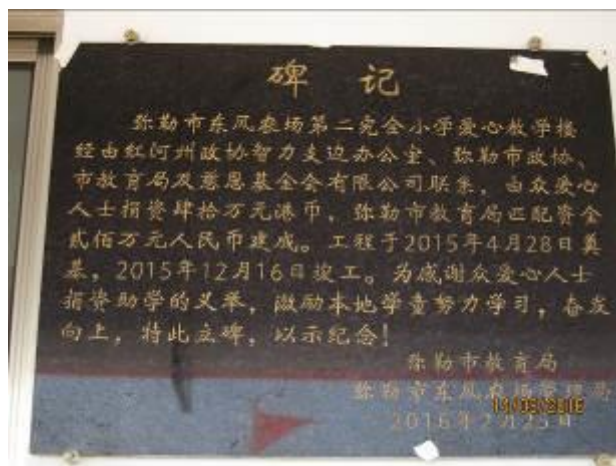 碑 记
弥勒市东风农场第二完全小学爱心教学楼
经由红河州政协智力支边办公室、弥勒市政协、
市教育局及意恩基金会有限公司联系，由众爱心
人士捐资肆拾万元港币，弥勒市教育局匹配资金
贰佰万元人民币建成。工程于2015年4月28日奠
基，2015年12月16日竣工。为感谢众爱心人士
捐资助学的义举，激励本地学童努力学习，奋发
向上，特此立碑，以示纪念！
弥勒市教育局
弥勒市东风农场管理局
2016年2月25日